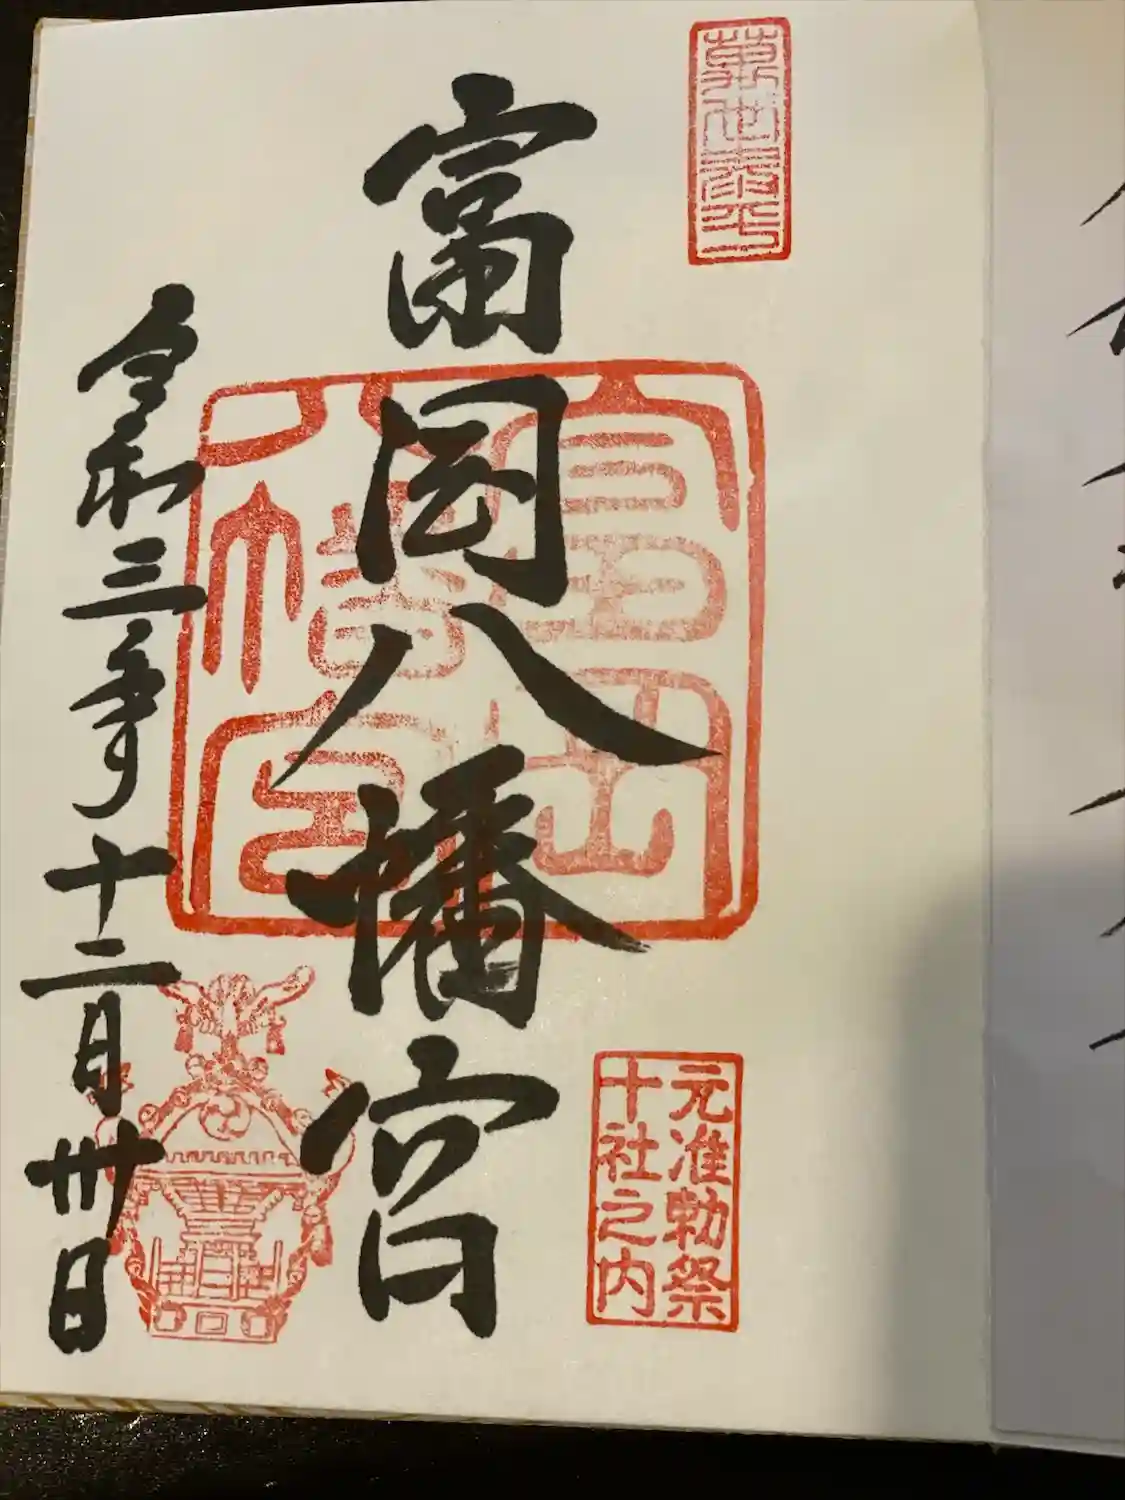 萬世泰平
富岡八幡宮
富岡
八幡宮
元准勅祭
十社之内
令和三年十二月卅日